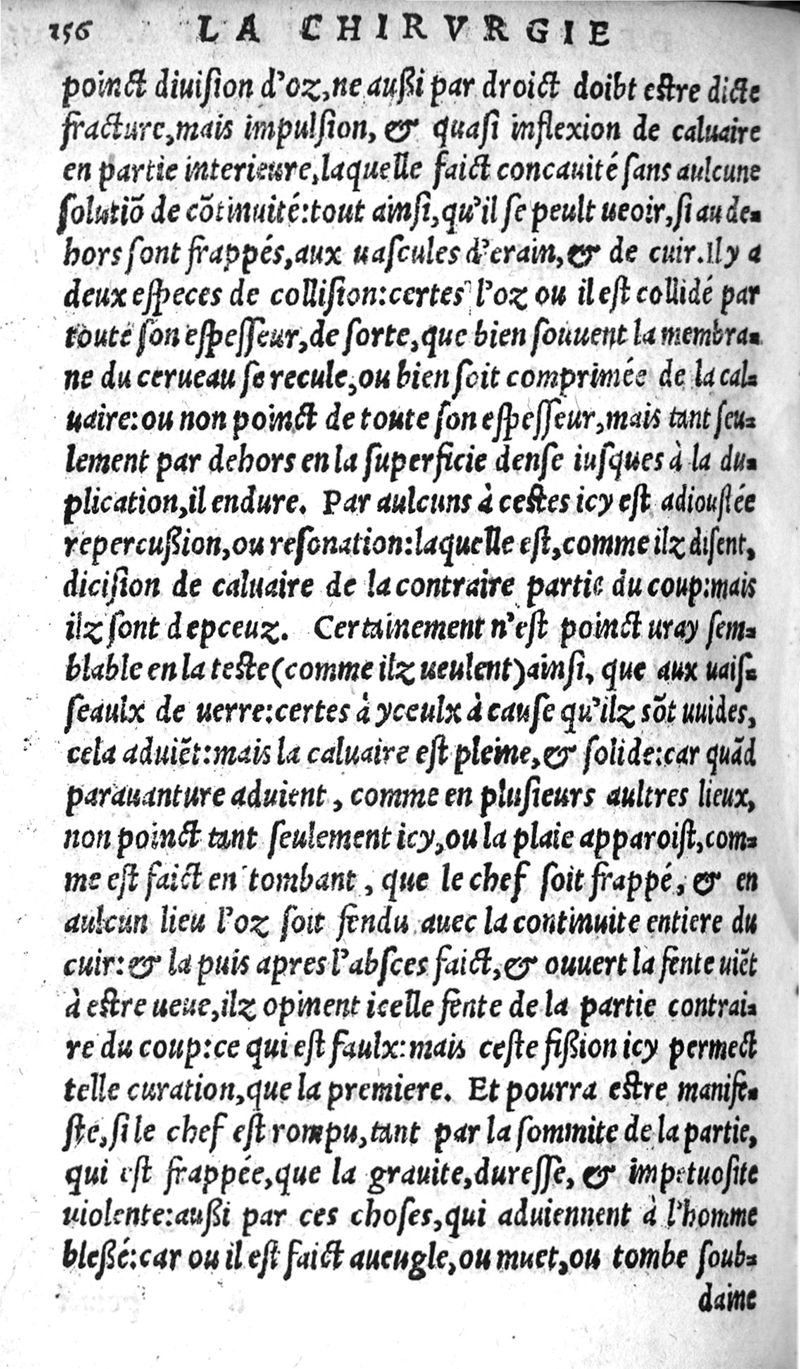 156 LA CHIRVRGIE
poinct diuiſion d'oz, ne auſſi par droict doibt eſtre dicte
fracture, mais impulſion, & quaſi inflexion de caluaire
en partie interieure, laquelle faict concauité ſans aulcune
ſolutiõ de cõtinuité: tout ainſi, qu'il ſe peult ueoir, ſi au de-
hors ſont frappés, aux uaſcules d'erain, & de cuir. Il y a
deux eſpeces de colliſion: certes l'oz ou il eſt collidé par
toute ſon eſpeſſeur, de ſorte, que bien ſouuent la membra-
ne du cerueau ſe recule, ou bien ſoit comprimée de la cal-
uaire: ou non poinct de toute ſon eſpeſſeur, mais tant ſeu-
lement par dehors en la ſuperficie denſe iuſques à la du-
plication, il endure. Par aulcuns à ceſtes icy eſt adiouſtée
repercuſſion, ou reſonation: laquelle eſt, comme ilz diſent,
diciſion de caluaire de la contraire partie du coup: mais
ilz ſont depceuz. Certainement n'eſt poinct uray ſem-
blable en la teſte (comme ilz ueulent) ainſi, que aux uaiſ-
ſeaulx de uerre: certes à yceulx à cauſe qu'ilz sõt uuides,
cela aduiẽt: mais la caluaire eſt pleine, & ſolide: car quãd
parauanture aduient, comme en pluſieurs aultres lieux,
non poinct tant ſeulement icy, ou la plaie apparoiſt, com-
me eſt faict en tombant, que le chef ſoit frappé, & en
aulcun lieu l'oz ſoit fendu auec la continuite entiere du
cuir: & la puis apres l'abſces faict, & ouuert la fente uiẽt
à eſtre ueue, ilz opinent icelle fente de la partie contrai-
re du coup: ce qui eſt faulx: mais ceſte fiſſion icy permect
telle curation, que la premiere. Et pourra eſtre manife-
ſté, ſi le chef eſt rompu, tant par la ſommite de la partie,
qui eſt frappée, que la grauite, dureſſe, & impetuoſite
violente: auſſi par ces choſes, qui aduiennent à l'homme
bleſſé: car ou il eſt faict aueugle, ou muet, ou tombe ſoub-
daine